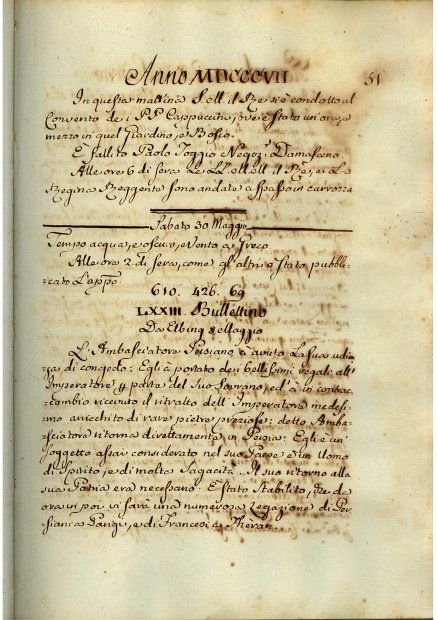 Anno MDCCCVII
51
In questa mattina S. M. il Re si è condotto al
Convento de i PP. Cappuccini, ove è stato un'ora, e
mezzo in quel Giardino, e Bosco.
È fallito Paolo Foggio Negoz. Damasceno
Alle ore 6 di sera Le LL. MM. il Re, e La
Regina Reggente sono andate a spasso in carrozza
Sabato 30 Maggio
Tempo acqua, e oscuro, Vento a Greco.
Alle ore 2. di sera, come gli altri è stato pubbli-
cato L'app.
610. 426. 69
LXXIII. Bullettino
Da Elbing 8 Maggio
L'Ambasciatore Persiano à avuto La sua udien-
za di congedo: Egli à portato dei bellissimi regali all'
Imperatore p parte del Suo Sovrano, ed à in contrac-
cambio ricevuto il ritratto dell'Imperatore medesi-
mo arricchito di rare pietre preziose: detto Amba-
sciatore ritorna direttamente in Persia: Egli è un'
Soggetto assai considerato nel suo Paese è un Uomo
di Spirito, e di molta Sagacità. Il suo ritorno alla
sua Patria era necessario: È stato Stabilito, che da
ora in poi vi sarà una numerosa Legazione di Per-
siani a Parigi, e di Francesi a Theran.